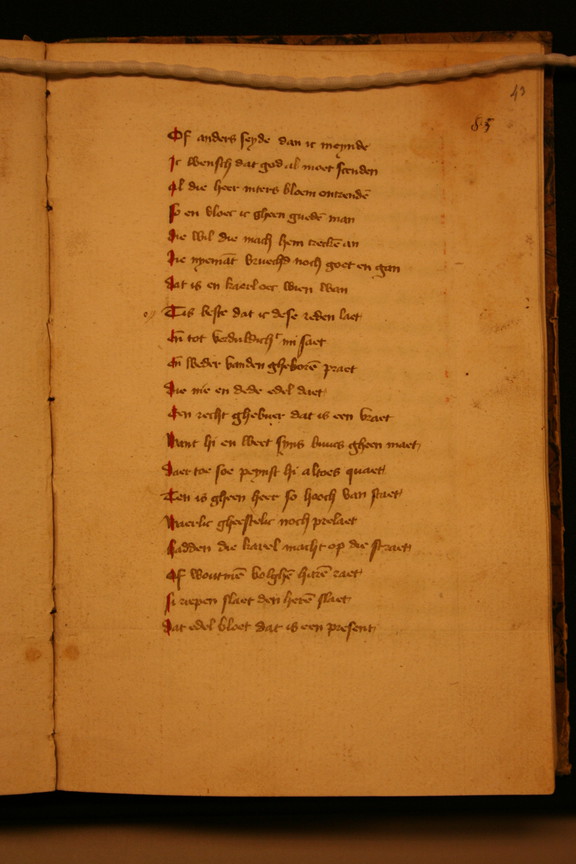 43
85
Of anders seyde dan ic meynde
Ic wensch dat god al moet scenden
Al die heer inters bloem ontrendē
So en vloec ic gheen guedē man
Die wil die mach hem trecken an
Die nyemāt vruechd noch goet en gan
Dat is en kaerl oec wien wan
Tis beste dat ic dese reden laet
En̄ tot verduldich mi saet
En̄ weder vanden gheborē praet
Die nie en dede edel daet
Een recht ghebuer dat is een vraet
Want hi en weet syns buucs gheen maet
Daer toe soe peynst hi altoes quaet
Ten is gheen heer so hooch van staet
Waerlic gheestelic noch prelaet
Hadden die karel macht op die straet
Of woutmē volghē harē raet
Si riepen slaet den herē slaet
Dat edel bloet dat is een present